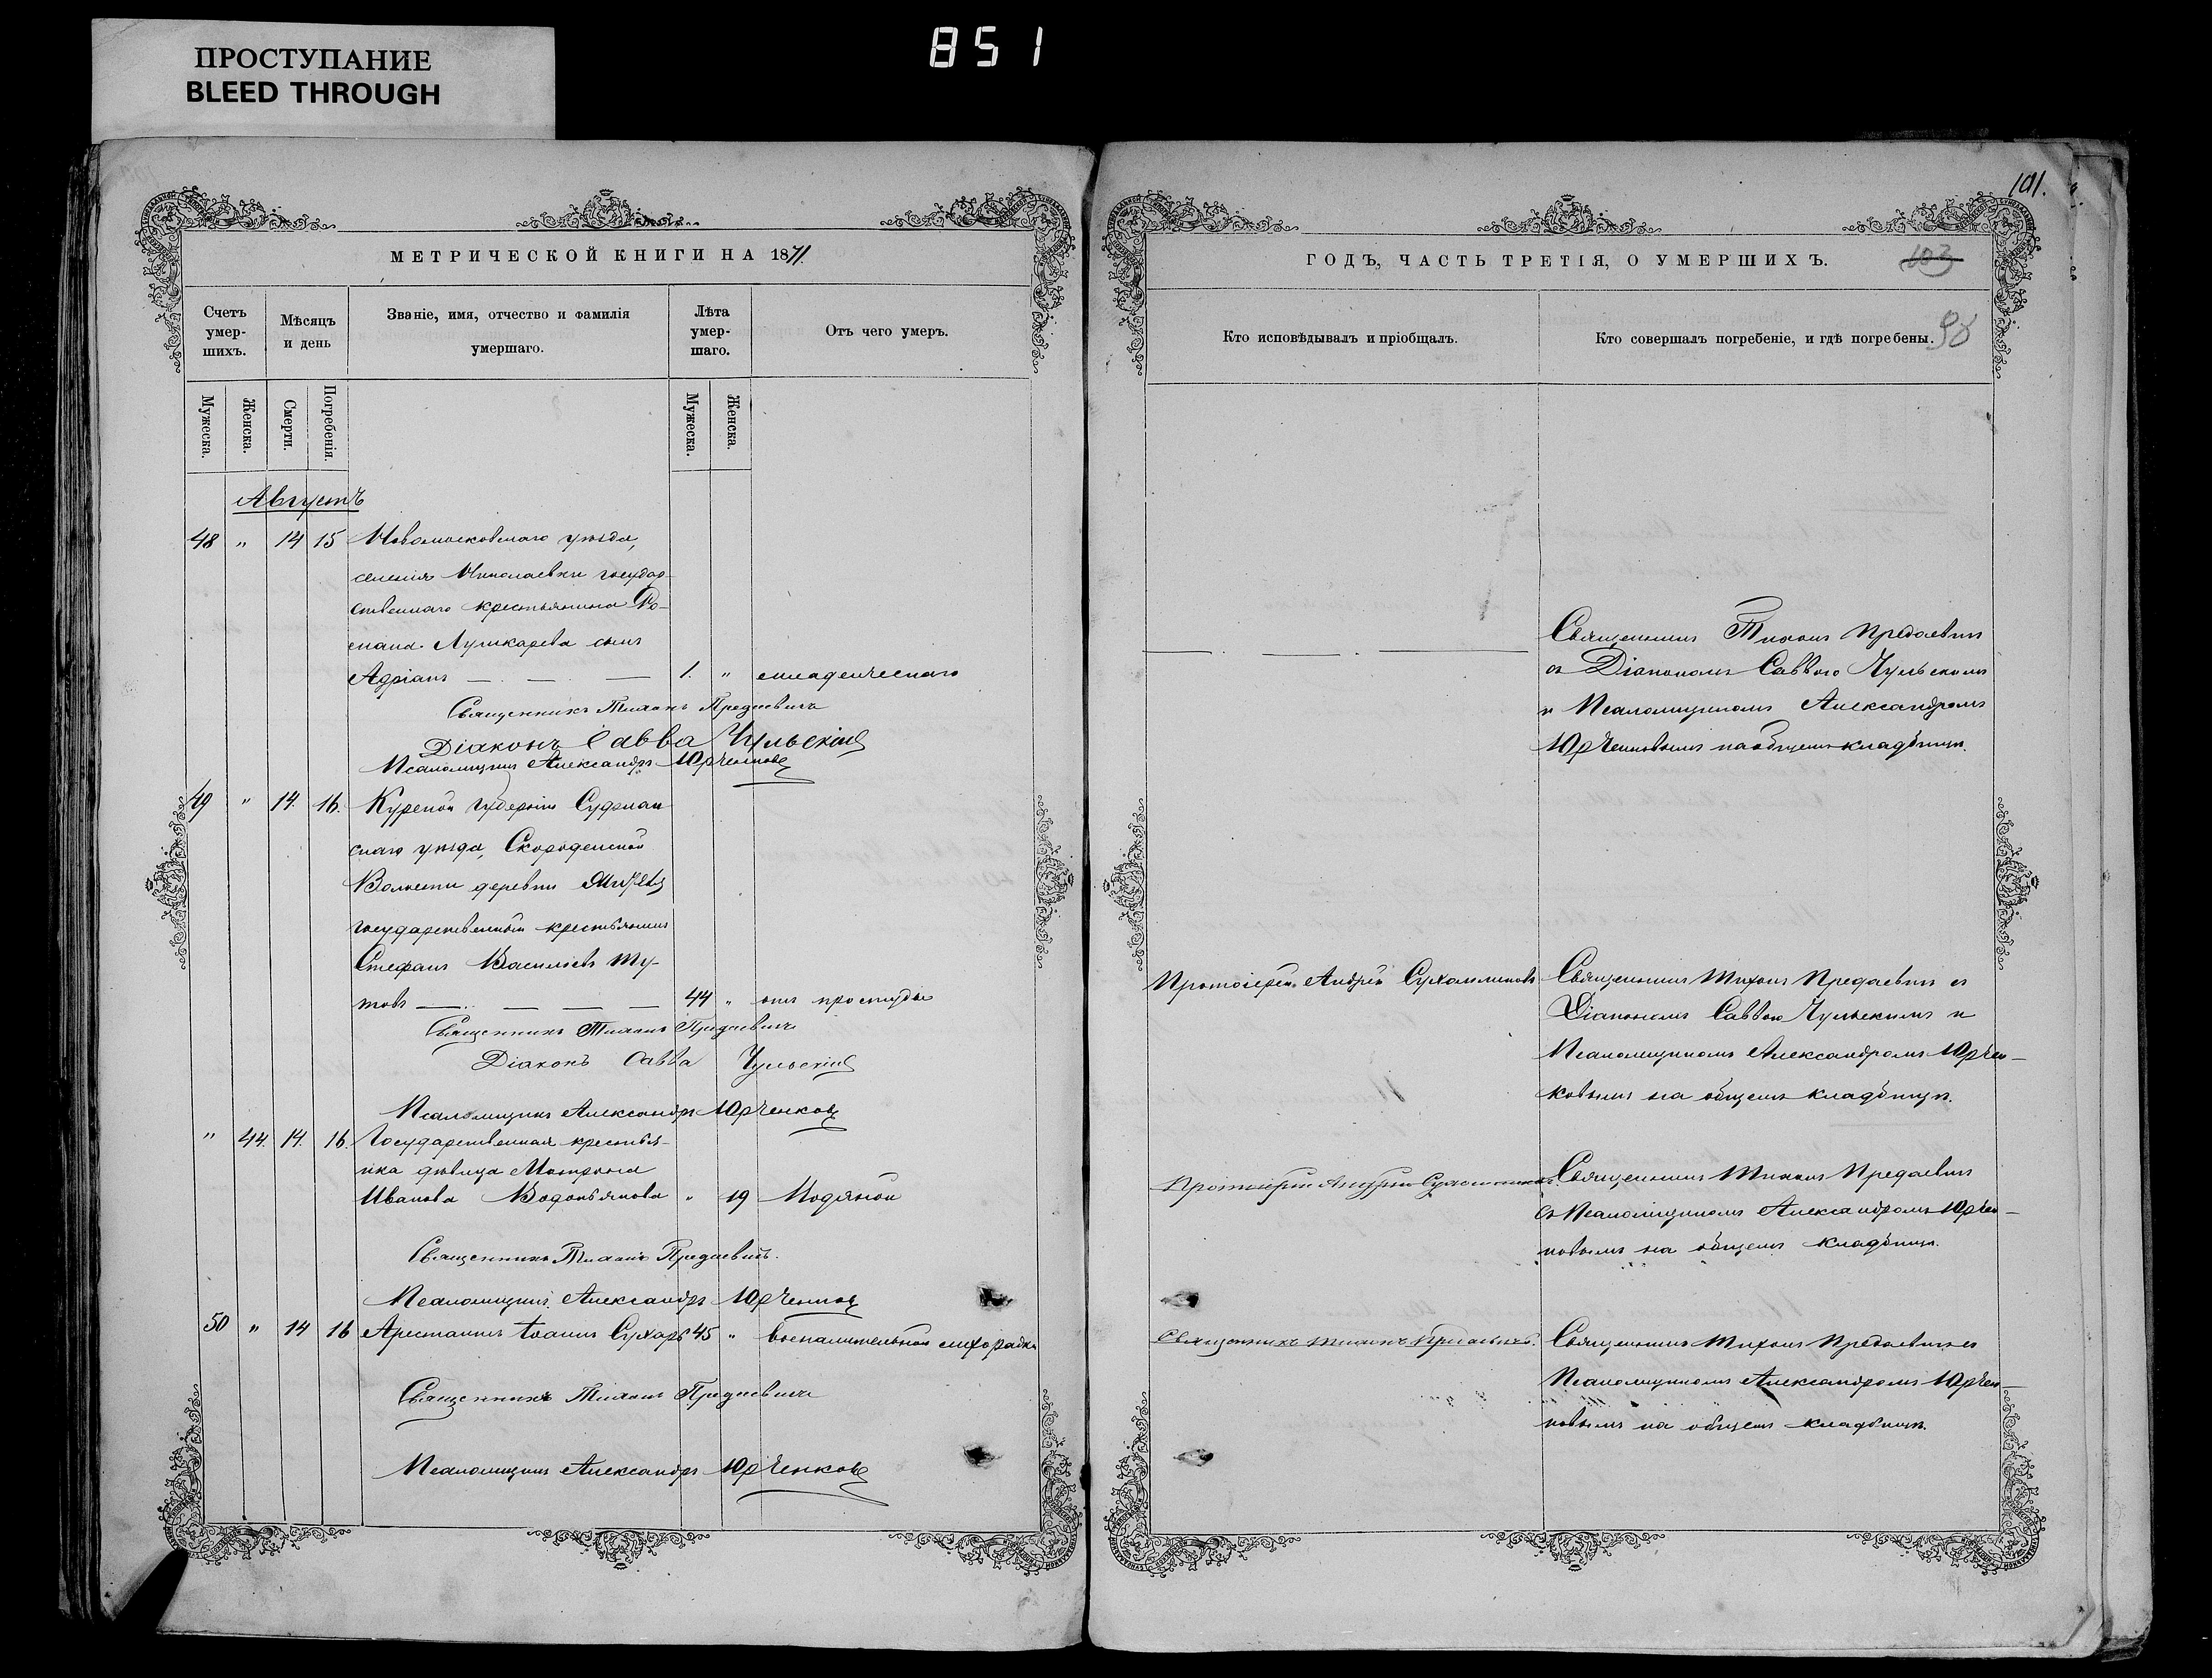 ПРОСТУПАНИЕ
BLEED THROUGH
851
МЕТРИЧЕСКОЙ КНИГИ НА 1871.
Счетъ умер-шихъ.
Мѣсяцъ и день
Званіе, имя, отчество и фамилія умершаго.
Лѣта умер-шаго.
Отъ чего умеръ.
Мужеска.
Женска.
Смерти.
Погребенія.
Мужеска.
Женска.
Августъ
48 " 14 15 Новомосковскаго уѣзда,
селенія Николаевки государ-
ственнаго крестьянина Ро-
мана Лушкарева сынъ
Адріанъ — — — 1. " младенческаго
Священникъ Тихонъ Предаевичъ
Діаконъ Савва Чульскій
Псаломщикъ Александръ Юрченковъ
49 " 14. 16. Курской губерніи Суджан
скаго уѣзда, Скороденской
Волости деревни
государственный крестьянинъ
Стефанъ Васильевъ Ту-
товъ — — — 44 " отъ простуды
Священникъ Тихонъ Предаевичъ
Діаконъ Савва Чульскій
Псаломщикъ Александръ Юрченковъ
" 44. 14. 16. Государственная крестья-
нка дѣвица Матрона
Иванова Водопьянова " 19 Водяной
Священникъ Тихонъ Предаевичъ.
Псаломщикъ Александръ Юрченковъ
50 " 14 16 Арестантъ Іоаннъ Сухарь 45 " воспалительной лихорадки
Священникъ Тихонъ Предаевичъ
Псаломщикъ Александръ Юрченковъ
101.
ГОДЪ, ЧАСТЬ ТРЕТІЯ, О УМЕРШИХЪ.
103
98
Кто исповѣдывалъ и пріобщалъ.
Кто совершалъ погребеніе, и гдѣ погребены.
Священникъ Тихонъ Предаевичъ
съ Діакономъ Саввою Чульскимъ
и Псаломщикомъ Александромъ
Юрченковымъ на общемъ кладбищѣ.
Протоіерей Андрей Сухомлиновъ
Священникъ Тихонъ Предаевичъ съ
Діакономъ Саввою Чульскимъ и
Псаломщикомъ Александромъ Юрчен-
ковымъ на общемъ кладбищѣ.
Протоіерей Андрей Сухомлиновъ.
Священникъ Тихонъ Предаевичъ
съ Псаломщикомъ Александромъ Юрчен-
ковымъ на общемъ кладбищѣ.
Священникъ Тихонъ Предаевичъ.
Священникъ Тихонъ Предаевичъ съ
Псаломщикомъ Александромъ Юрчен-
ковымъ на общемъ кладбищѣ.